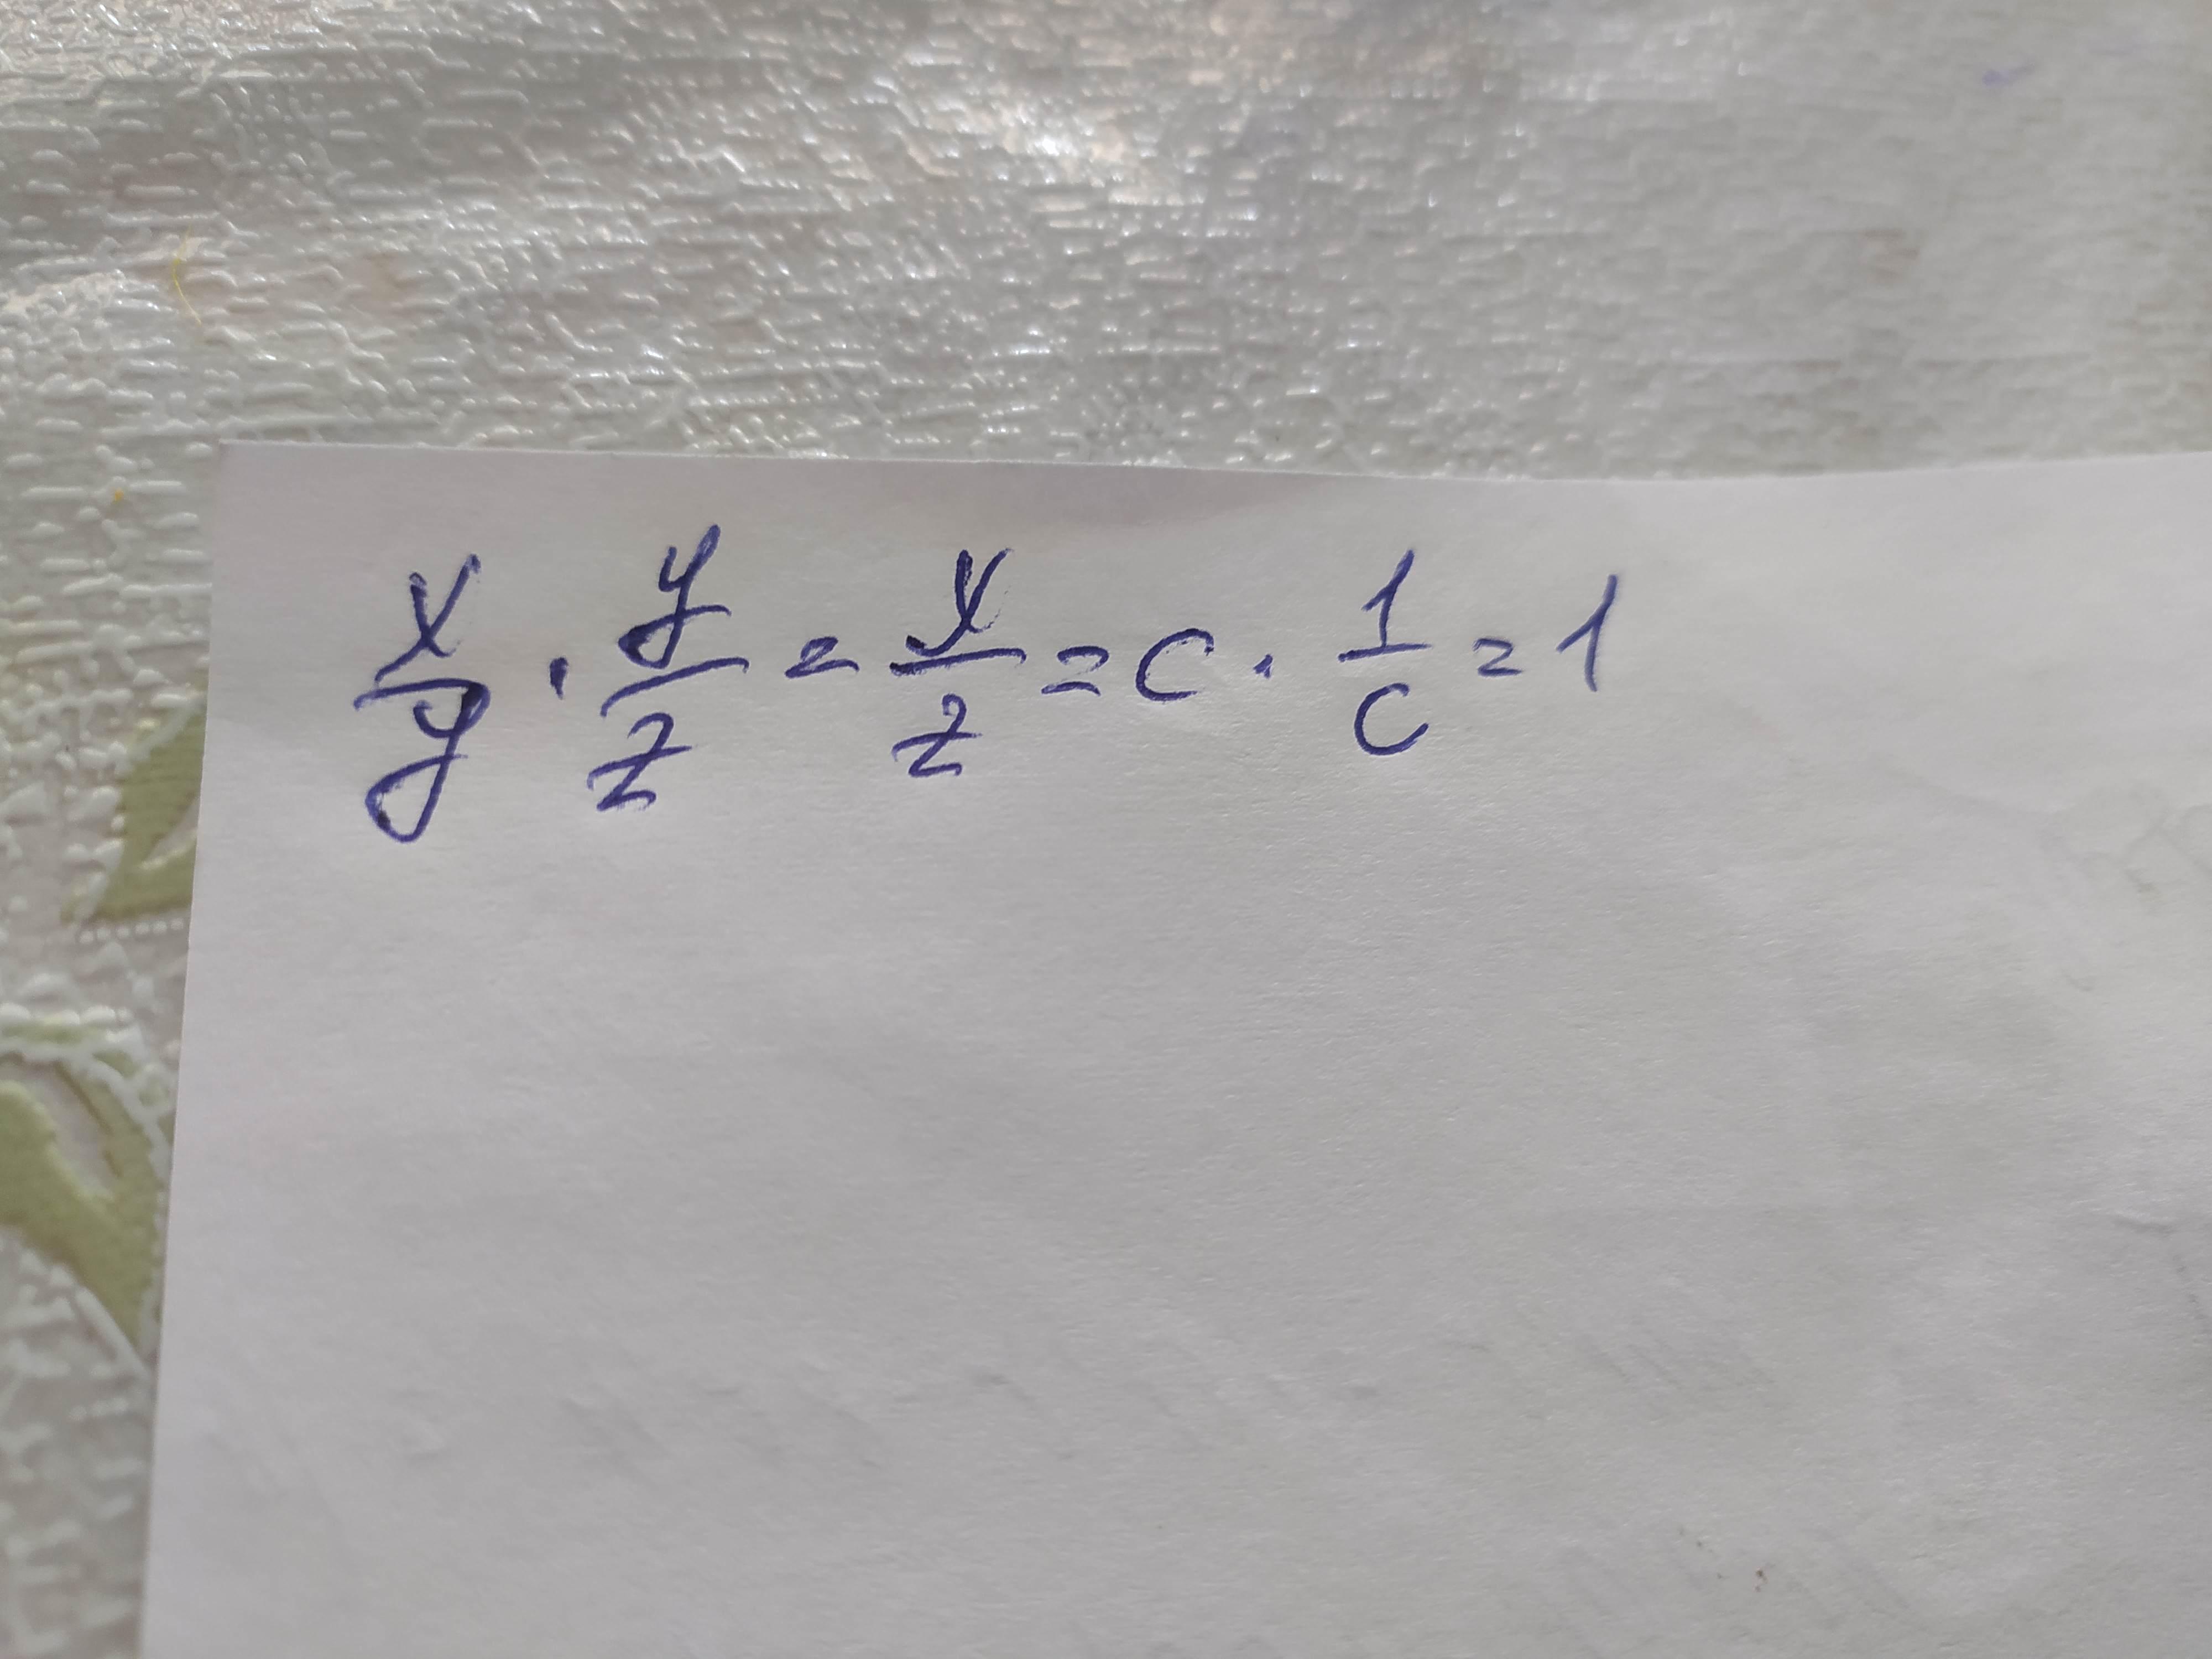 x/y · y/z = x/z = c · 1/c = 1